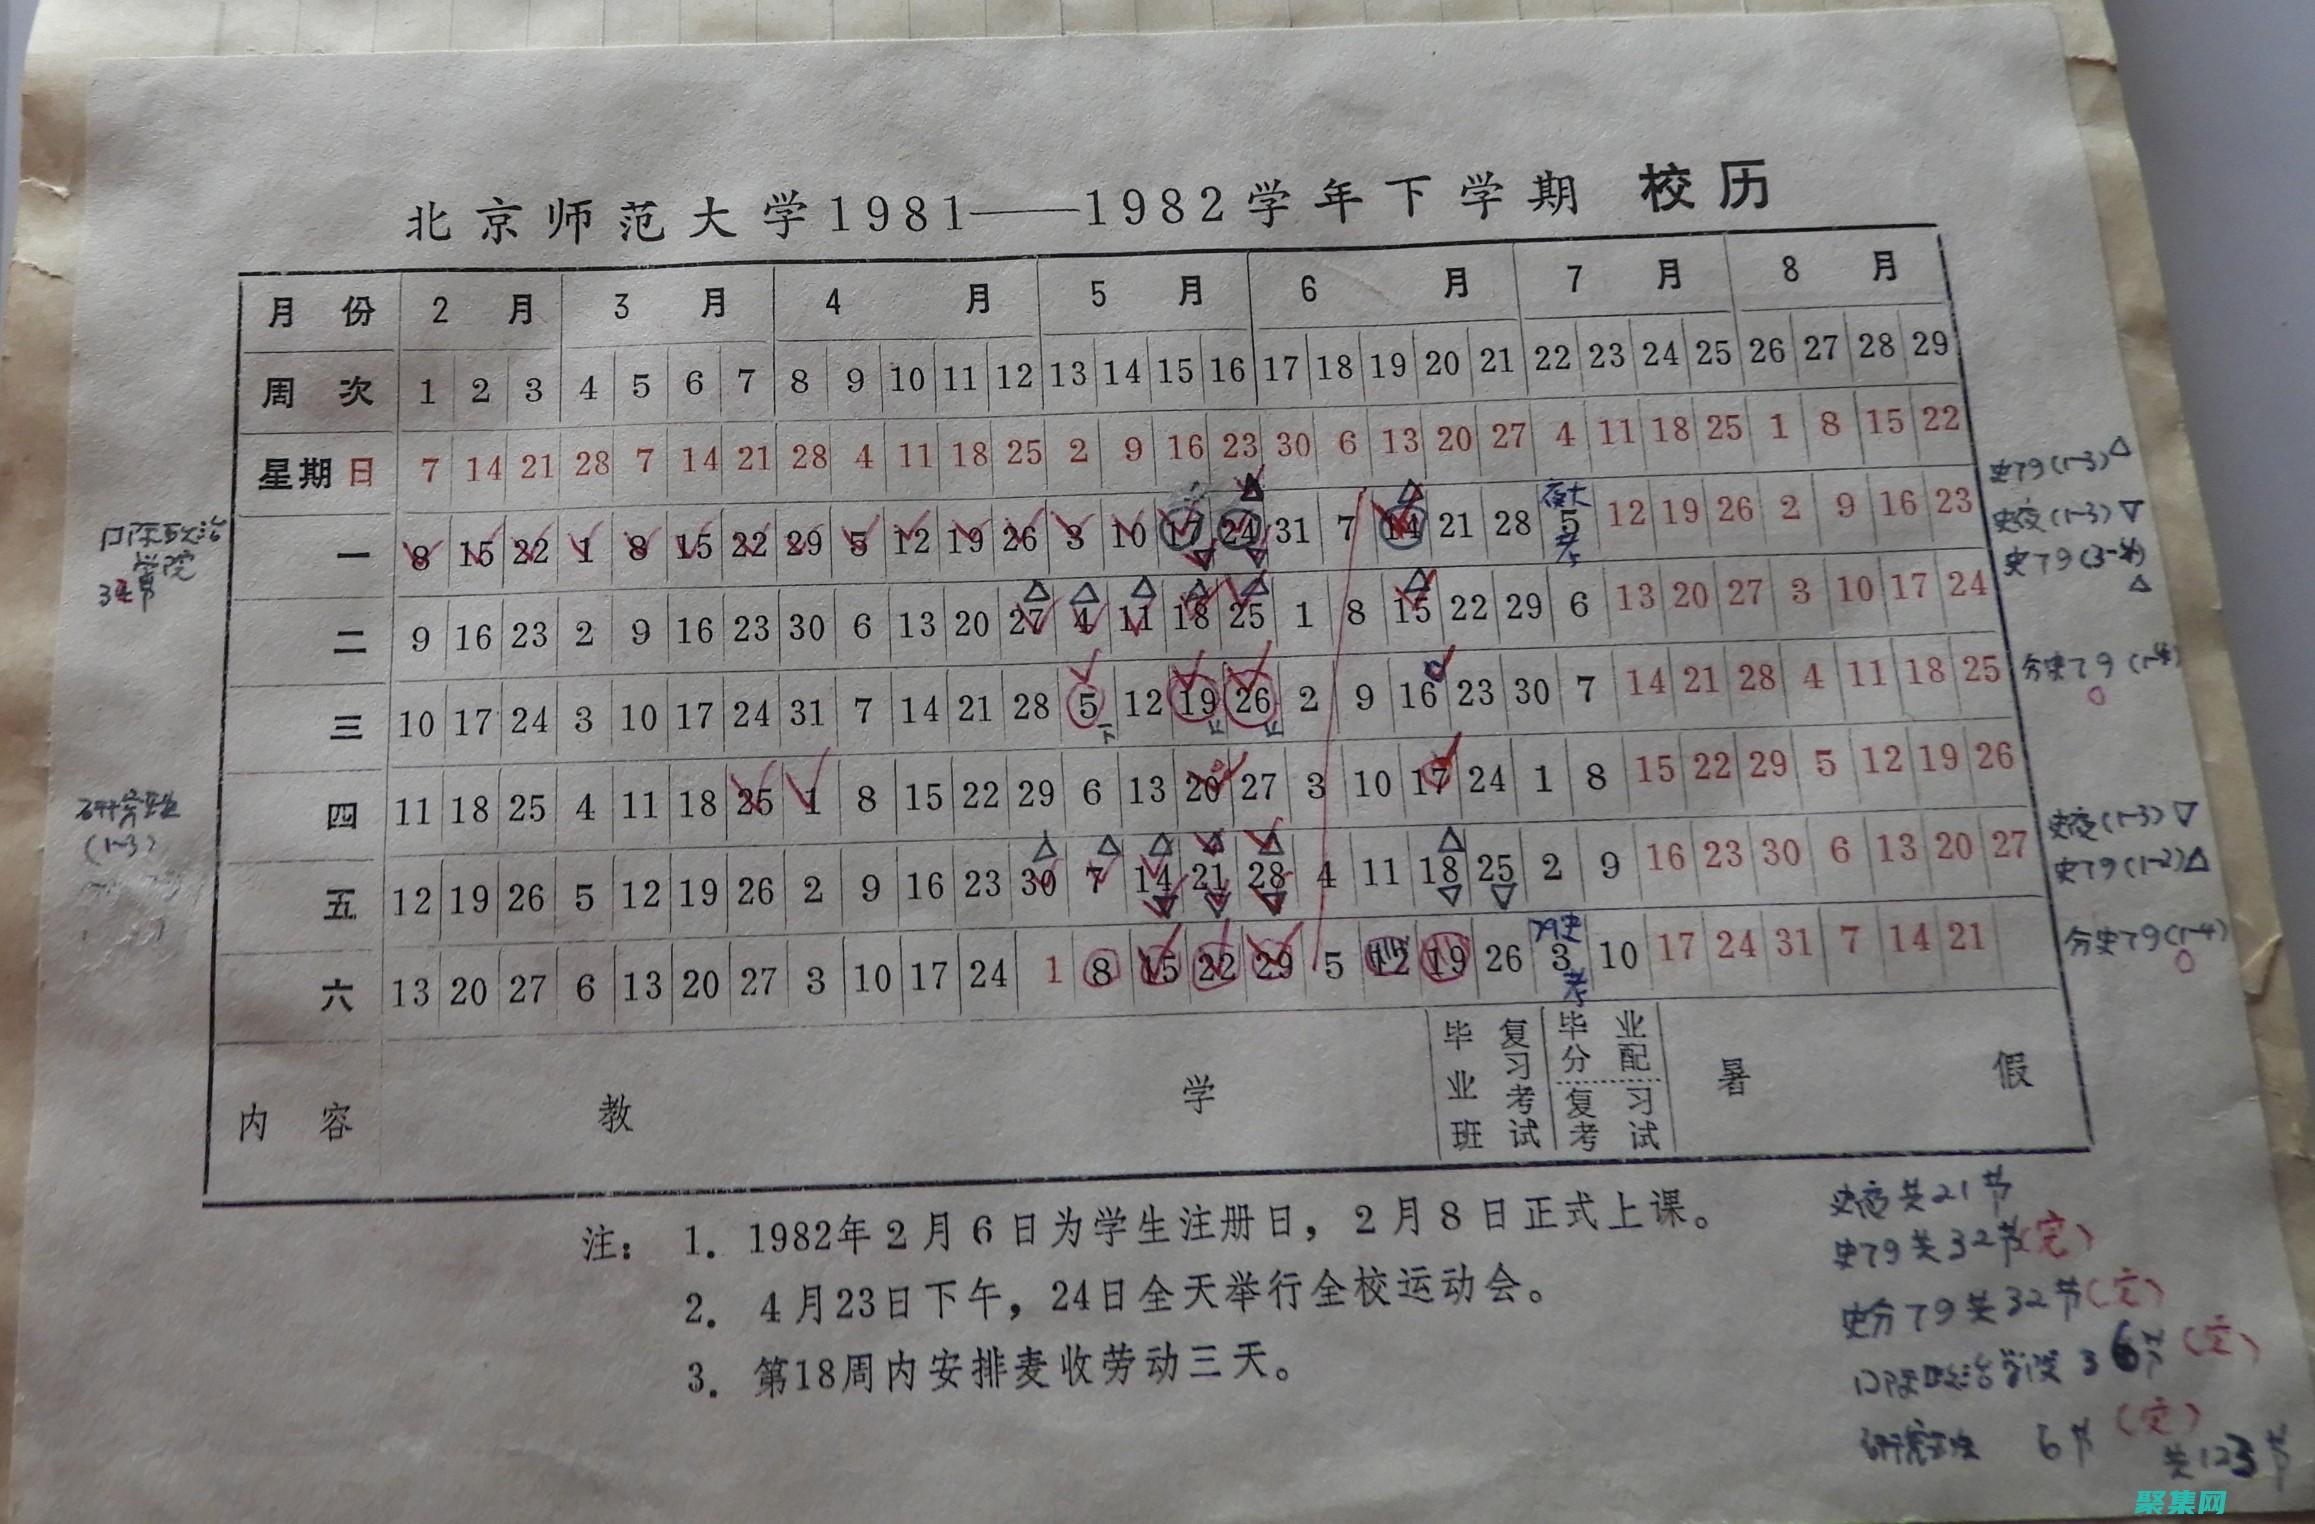 北京师范大学1981——1982学年下学期 校历
月份 2月 3月 4月 5月 6月 7月 8月
周次 1 2 3 4 5 6 7 8 9 10 11 12 13 14 15 16 17 18 19 20 21 22 23 24 25 26 27 28 29
星期日 7 14 21 28 7 14 21 28 4 11 18 25 2 9 16 23 30 6 13 20 27 4 11 18 25 1 8 15 22
史79(1-3)△
夜大
一 8 15 22 1 8 15 22 29 5 12 19 26 3 10 17 24 31 7 14 21 28 5 12 19 26 2 9 16 23
史夜(1-3)▽
考
政治
学院
史79(3-4)
△
二 9 16 23 2 9 16 23 30 6 13 20 27 4 11 18 25 1 8 15 22 29 6 13 20 27 3 10 17 24
三 10 17 24 3 10 17 24 31 7 14 21 28 5 12 19 26 2 9 16 23 30 7 14 21 28 4 11 18 25
分史79(1-4)
下 下 下
四 11 18 25 4 11 18 25 1 8 15 22 29 6 13 20 27 3 10 17 24 1 8 15 22 29 5 12 19 26
研究班
(1-3)
史夜(1-3)▽
五 12 19 26 5 12 19 26 2 9 16 23 30 7 14 21 28 4 11 18 25 2 9 16 23 30 6 13 20 27
史79(1-2)△
79史
六 13 20 27 6 13 20 27 3 10 17 24 1 8 15 22 29 5 12 19 26 3 10 17 24 31 7 14 21
分史79(1-4)
考
内容 教学 毕业班 复习考试 毕业分配 复习考试 暑假
注： 1. 1982年2月6日为学生注册日，2月8日正式上课。
2. 4月23日下午，24日全天举行全校运动会。
3. 第18周内安排麦收劳动三天。
史夜共21节
史79共32节(完)
史分79共32节(完)
政治学院 36节 (完)
研究班 6节 (完)
共123节
聚集网